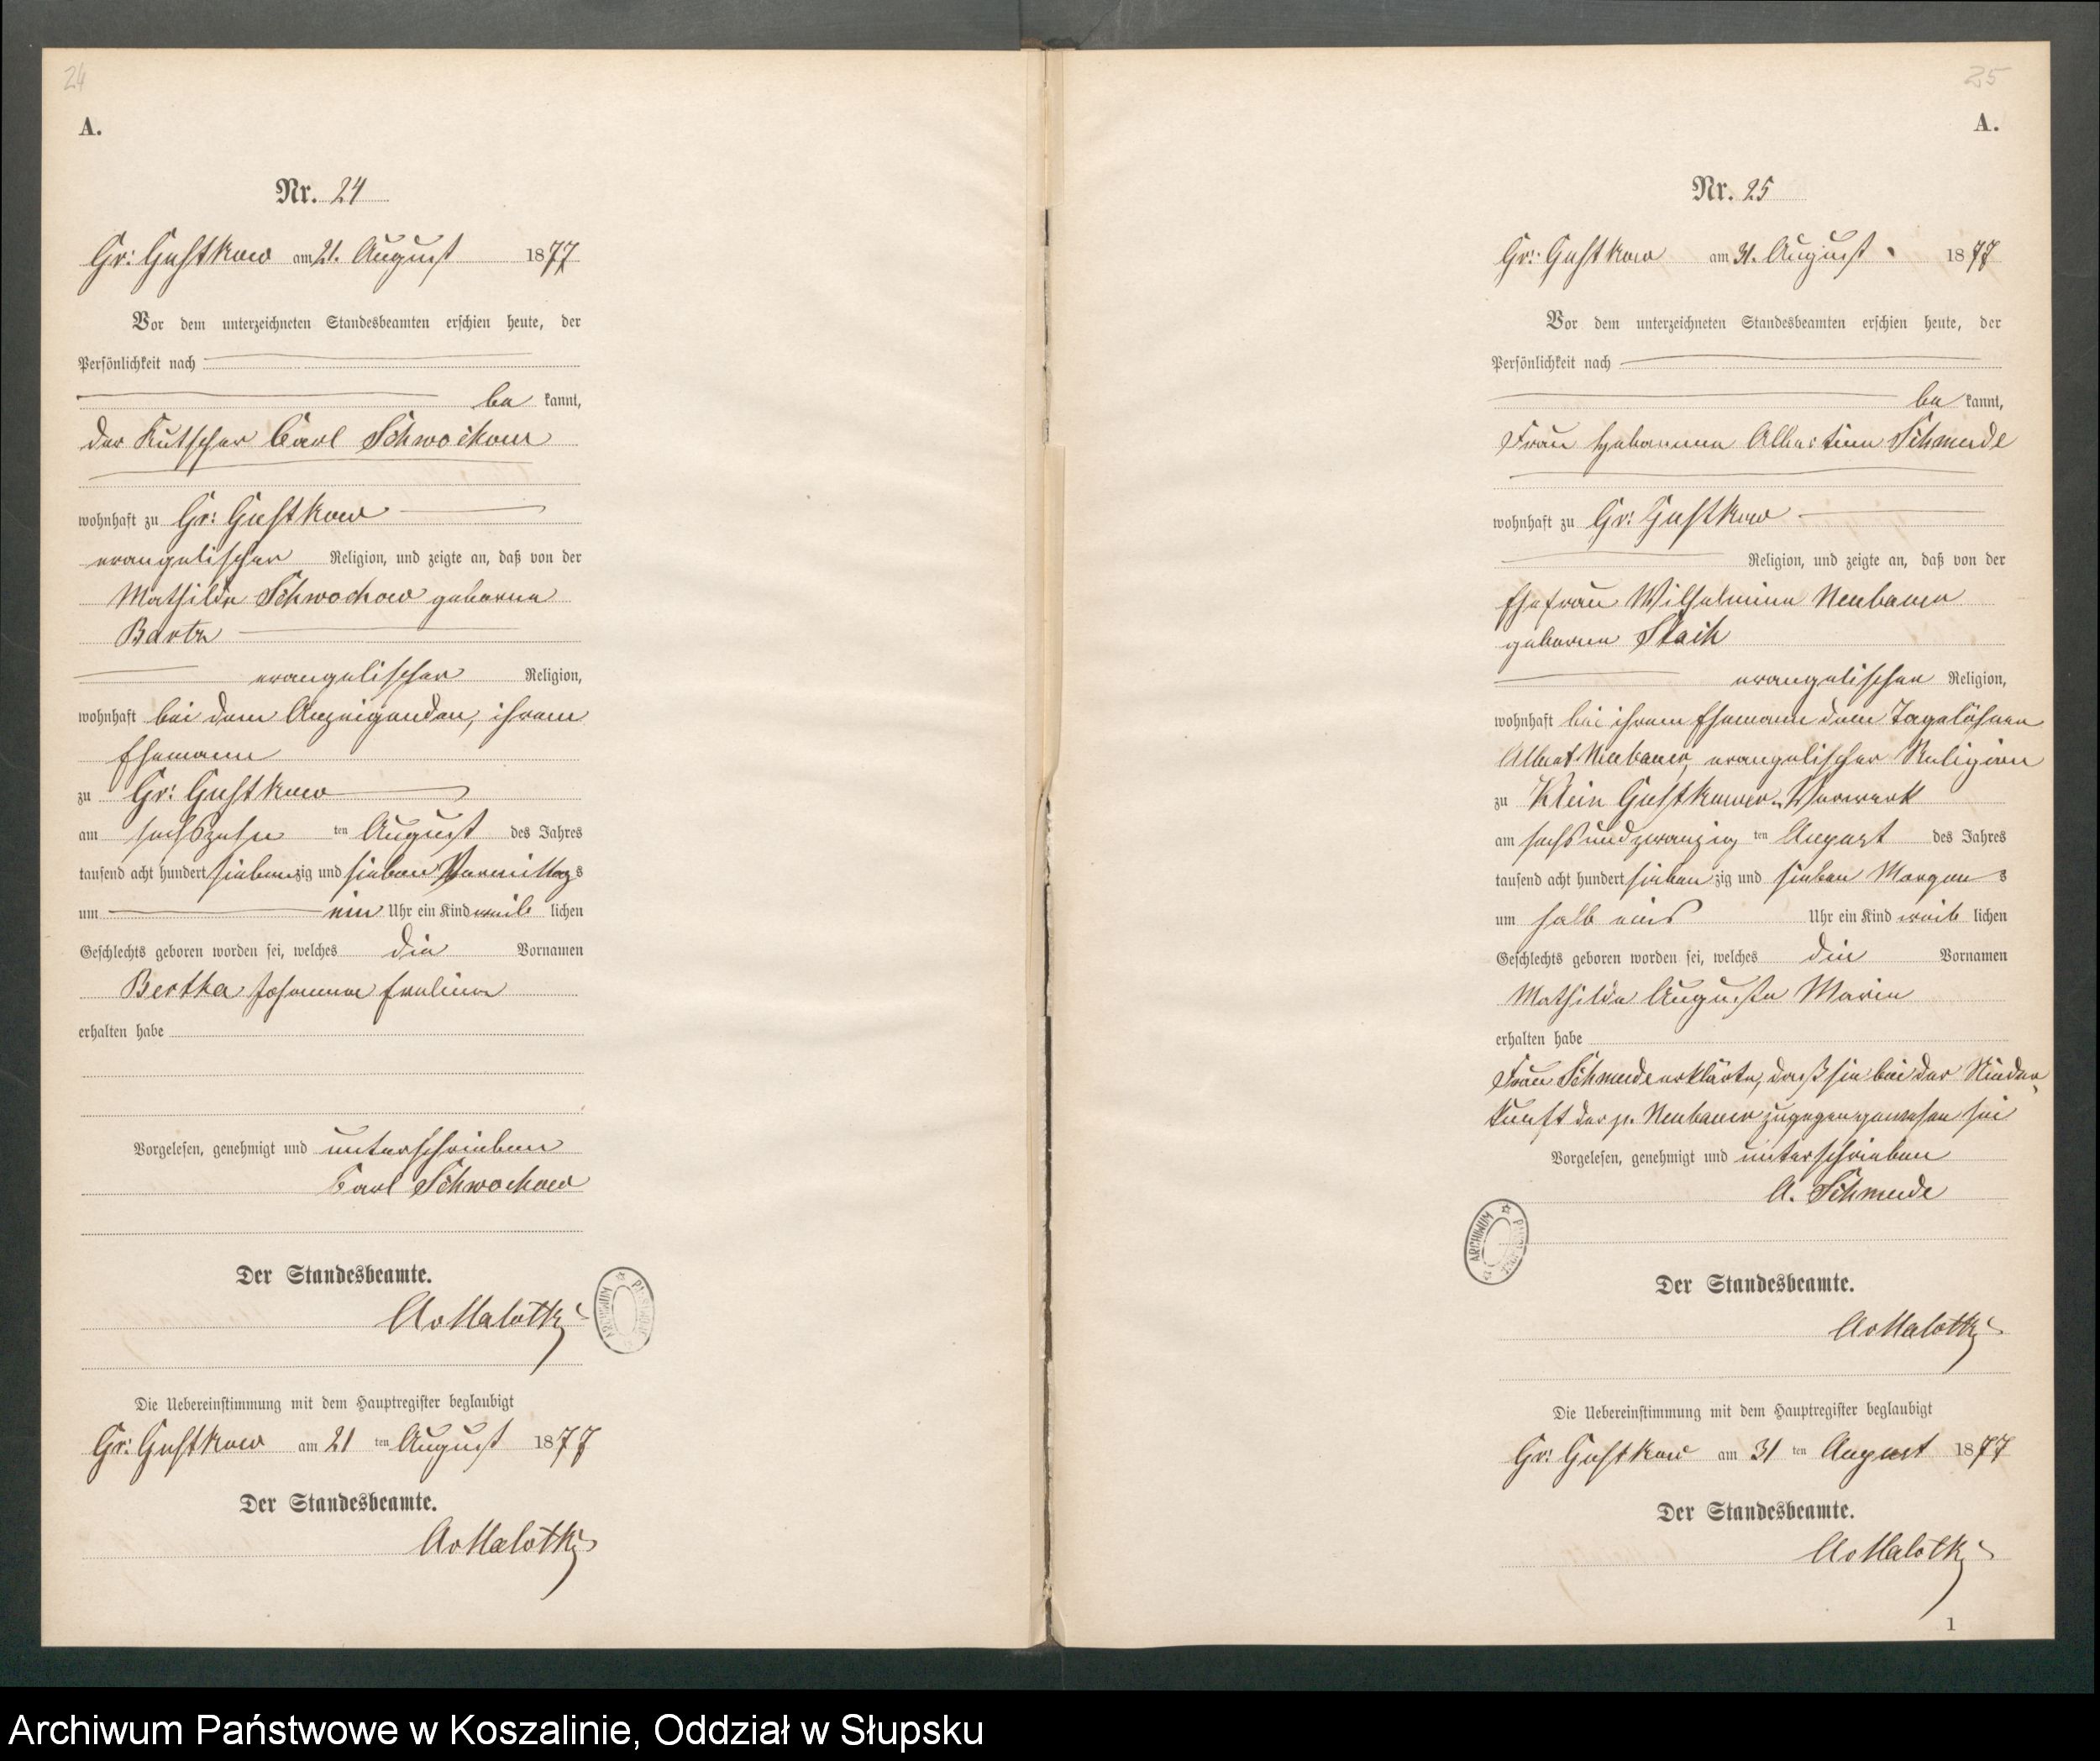 24
A.
Nr. 24
Gr: Gustkow am 21. August 1877
Vor dem unterzeichneten Standesbeamten erschien heute, der
Persönlichkeit nach
be kannt,
der Kutscher Carl Schwochow
wohnhaft zu Gr: Gustkow
evangelischer Religion, und zeigte an, daß von der
Mathilde Schwochow geborne
Bartz
evangelischer Religion,
wohnhaft bei dem Anzeigenden, ihrem
Ehemann
zu Gr: Gustkow
am sechszehn ten August des Jahres
tausend acht hundert siebenzig und sieben Vormittags
um ein Uhr ein Kind weib lichen
Geschlechts geboren worden sei, welches die Vornamen
Bertha Johanna
erhalten habe
Vorgelesen, genehmigt und unterschrieben
Carl Schwochow
Der Standesbeamte.
AvMalotki
Die Uebereinstimmung mit dem Hauptregister beglaubigt
Gr: Gustkow am 21 ten August 1877
Der Standesbeamte.
AvMalotki
ARCHIWUM
25
A.
Nr. 25
Gr: Gustkow am 31. August 1877
Vor dem unterzeichneten Standesbeamten erschien heute, der
Persönlichkeit nach
be kannt,
Frau Hebamme Albertine Schmude
wohnhaft zu Gr: Gustkow
Religion, und zeigte an, daß von der
Ehefrau Wilhelmine Neubauer
geborne Staih
evangelischen Religion,
wohnhaft bei ihrem Ehemann dem Tagelöhner
Albert Neubauer, evangelischer Religion
zu Klein Gustkower-Vorwerk
am sechsundzwanzig ten August des Jahres
tausend acht hundert sieben zig und sieben Morgens
um halb eins Uhr ein Kind weib lichen
Geschlechts geboren worden sei, welches die Vornamen
Mathilde Auguste Marie
erhalten habe
Frau Schmude erklärte, daß sie bei der Nieder
kunft der p. Neubauer zugegen gewesen sei
Vorgelesen, genehmigt und unterschrieben
A. Schmude
ARCHIWUM
Der Standesbeamte.
AvMalotki
Die Uebereinstimmung mit dem Hauptregister beglaubigt
Gr: Gustkow am 31 ten August 1877
Der Standesbeamte.
AvMalotki
1
Archiwum Państwowe w Koszalinie, Oddział w Słupsku